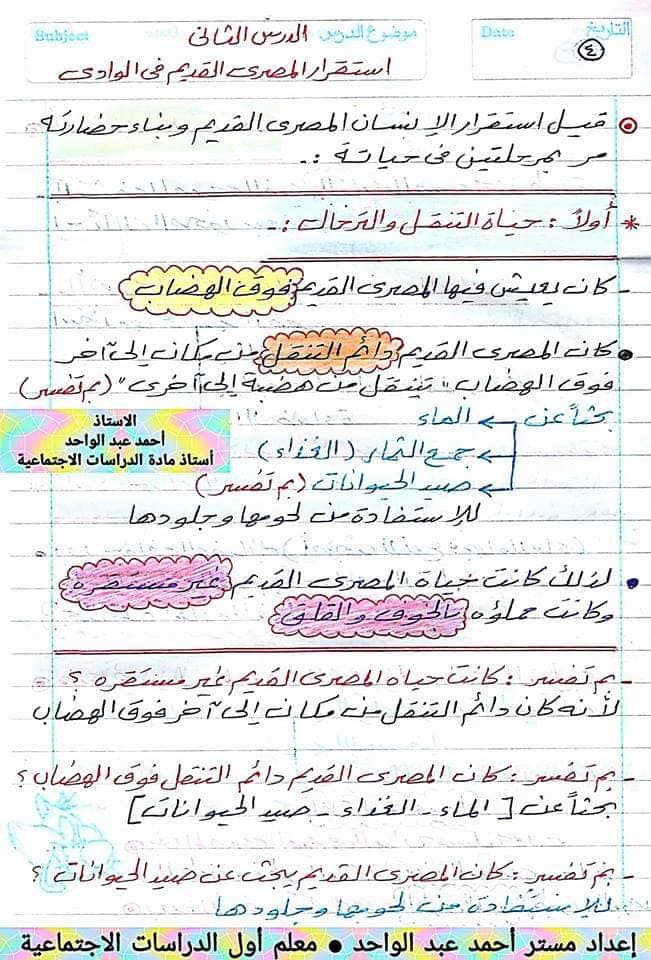 التاريخ Date
٤
موضوع الدرس Subject
الدرس الثانى
استقرار المصرى القديم فى الوادى
قبل استقرار الإنسان المصرى القديم وبناء حضارته
مر بمرحلتين فى حياته :-
* أولاً : حياة التنقل والترحال :-
- كان يعيش فيها المصرى القديم فوق الهضاب
• كان المصرى القديم دائم التنقل من مكان إلى آخر
فوق الهضاب "يتنقل من هضبة إلى آخرى" (بم تفسر)
بحثاً عن ← الماء
← جمع الثمار (الغذاء)
← صيد الحيوانات (بم تفسر)
للإستفادة من لحومها وجلودها
الاستاذ
أحمد عبد الواحد
أستاذ مادة الدراسات الاجتماعية
• لذلك كانت حياة المصرى القديم غير مستقره
وكانت مملؤه بالخوف والقلق
- بم تفسر : كانت حياه المصرى القديم غير مستقره ؟
لأنه كان دائم التنقل من مكان إلى آخر فوق الهضاب
- بم تفسر : كان المصرى القديم دائم التنقل فوق الهضاب ؟
بحثاً عن [ الماء - الغذاء - صيد الحيوانات ]
- بم تفسر : كان المصرى القديم يبحث عن صيد الحيوانات ؟
للإستفادة من لحومها وجلودها
إعداد مستر أحمد عبد الواحد • معلم أول الدراسات الاجتماعية